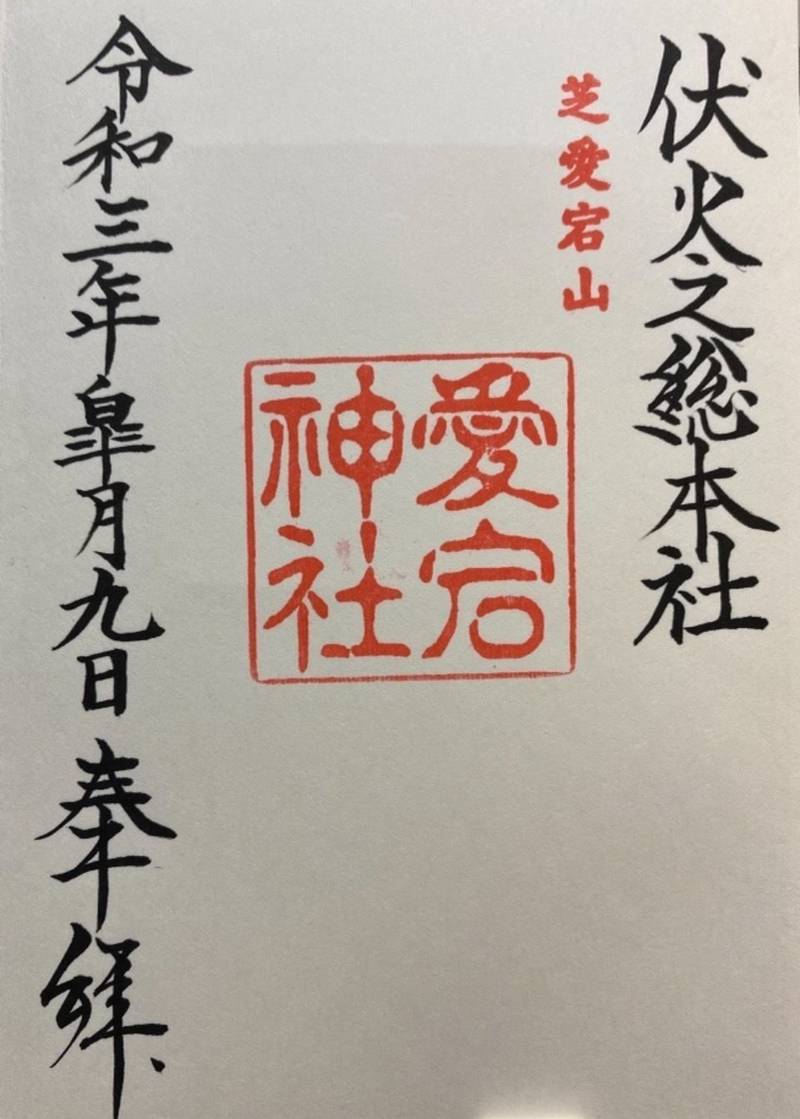 伏火之総本社
芝愛宕山
愛宕
神社
令和三年皐月九日 奉拝